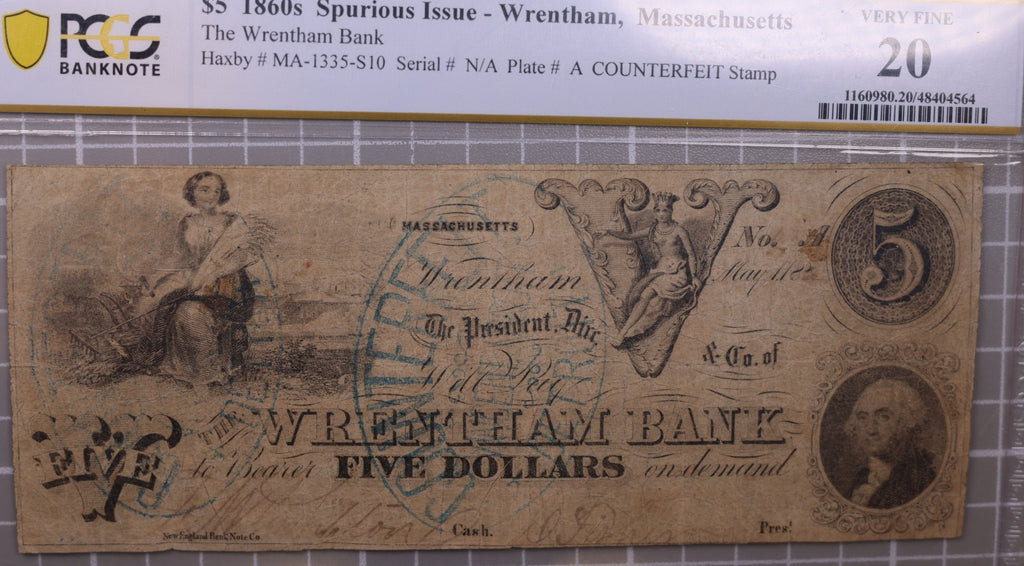 $5 1860s Spurious Issue - Wrentham, Massachusetts
The Wrentham Bank
Haxby # MA-1335-S10 Serial # N/A Plate # A COUNTERFEIT Stamp
PCGS
BANKNOTE
VERY FINE
20
1160980.20/48404564
MASSACHUSETTS
No. A
5
Wrentham
May 1
V
The President, Dirc
& Co. of
Will Pay
THE WRENTHAM BANK
FIVE
V
to Bearer FIVE DOLLARS on demand
COUNTERFEIT
Cash.
Pres!
New England Bank Note Co.